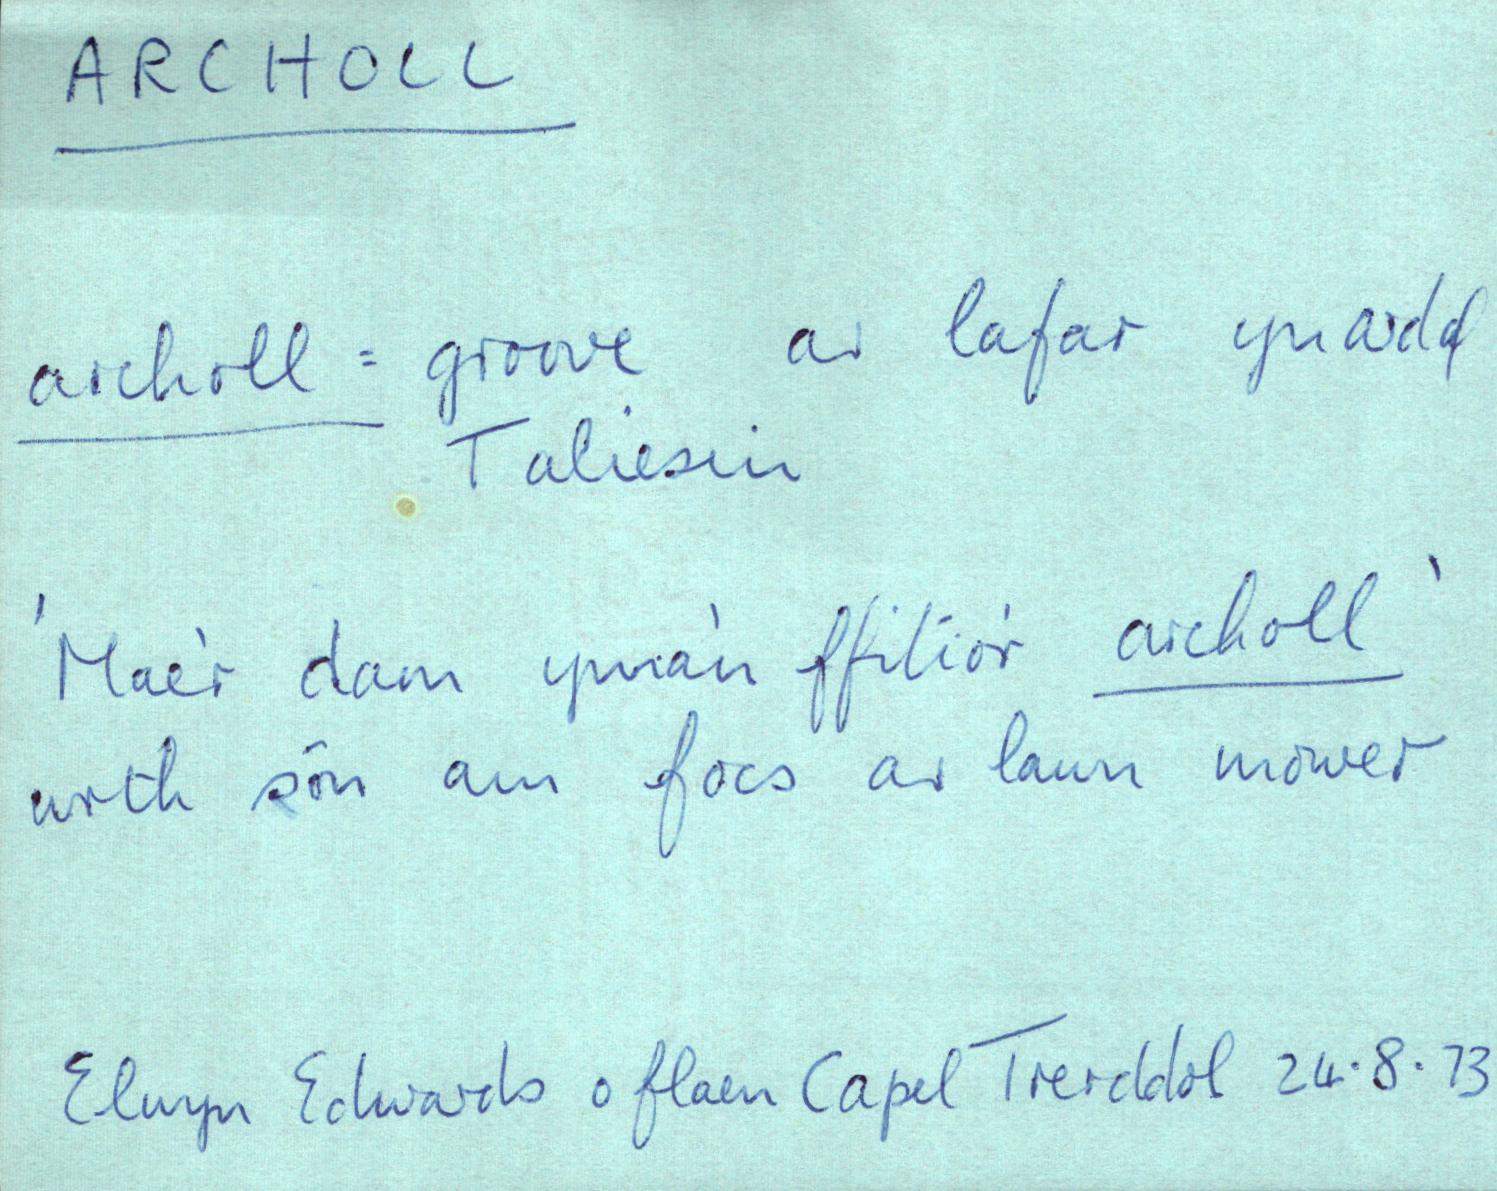 ARCHOLL
archoll = groove ar lafar ynardd
Taliesin
'Mae'r darn yma'n ffitio'r archoll'
wrth sôn am focs ar lawn mower
Elwyn Edwards o flaen Capel Trerddôl 24.8.73